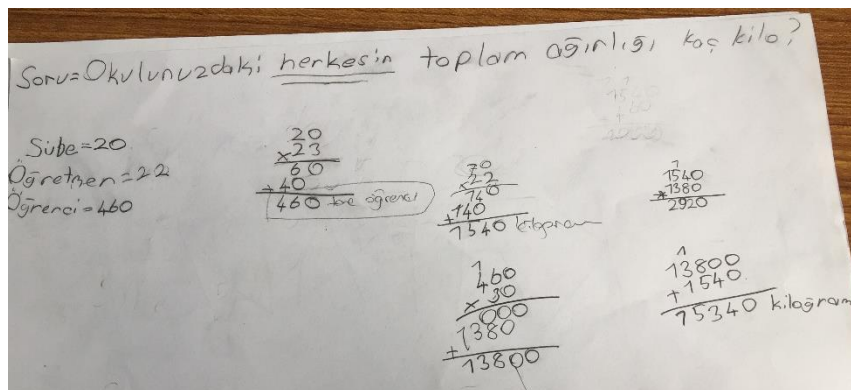 Soru=Okulunuzdaki herkesin toplam ağırlığı kaç kilo?
Şube=20
Öğretmen=22
Öğrenci=460
20
x23
60
+40
460 tane öğrenci
70
x22
140
+140
1540 kilogram
1
460
x 30
000
1380
+
13800
1
1540
+1380
2920
1
13800
+1540
15340 kilogram